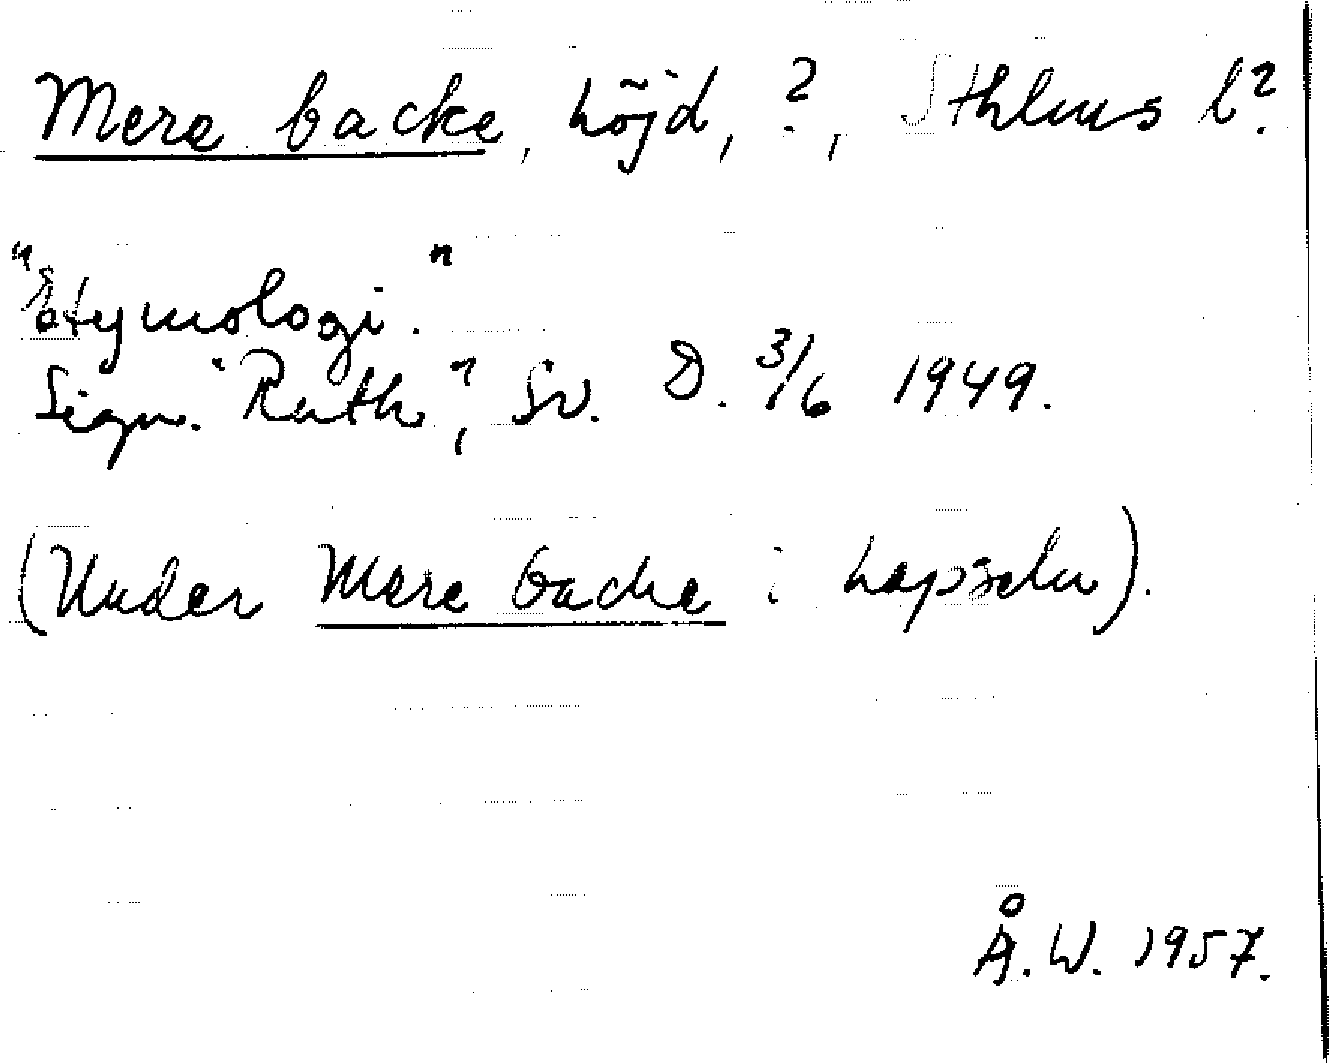 Mere backe, höjd, ?, Sthlms l?
"Etymologi."
Sign. "Ruth", Sv. D. 3/6 1949.
(Under Mere backe i kapseln).
Å.W. 1957.